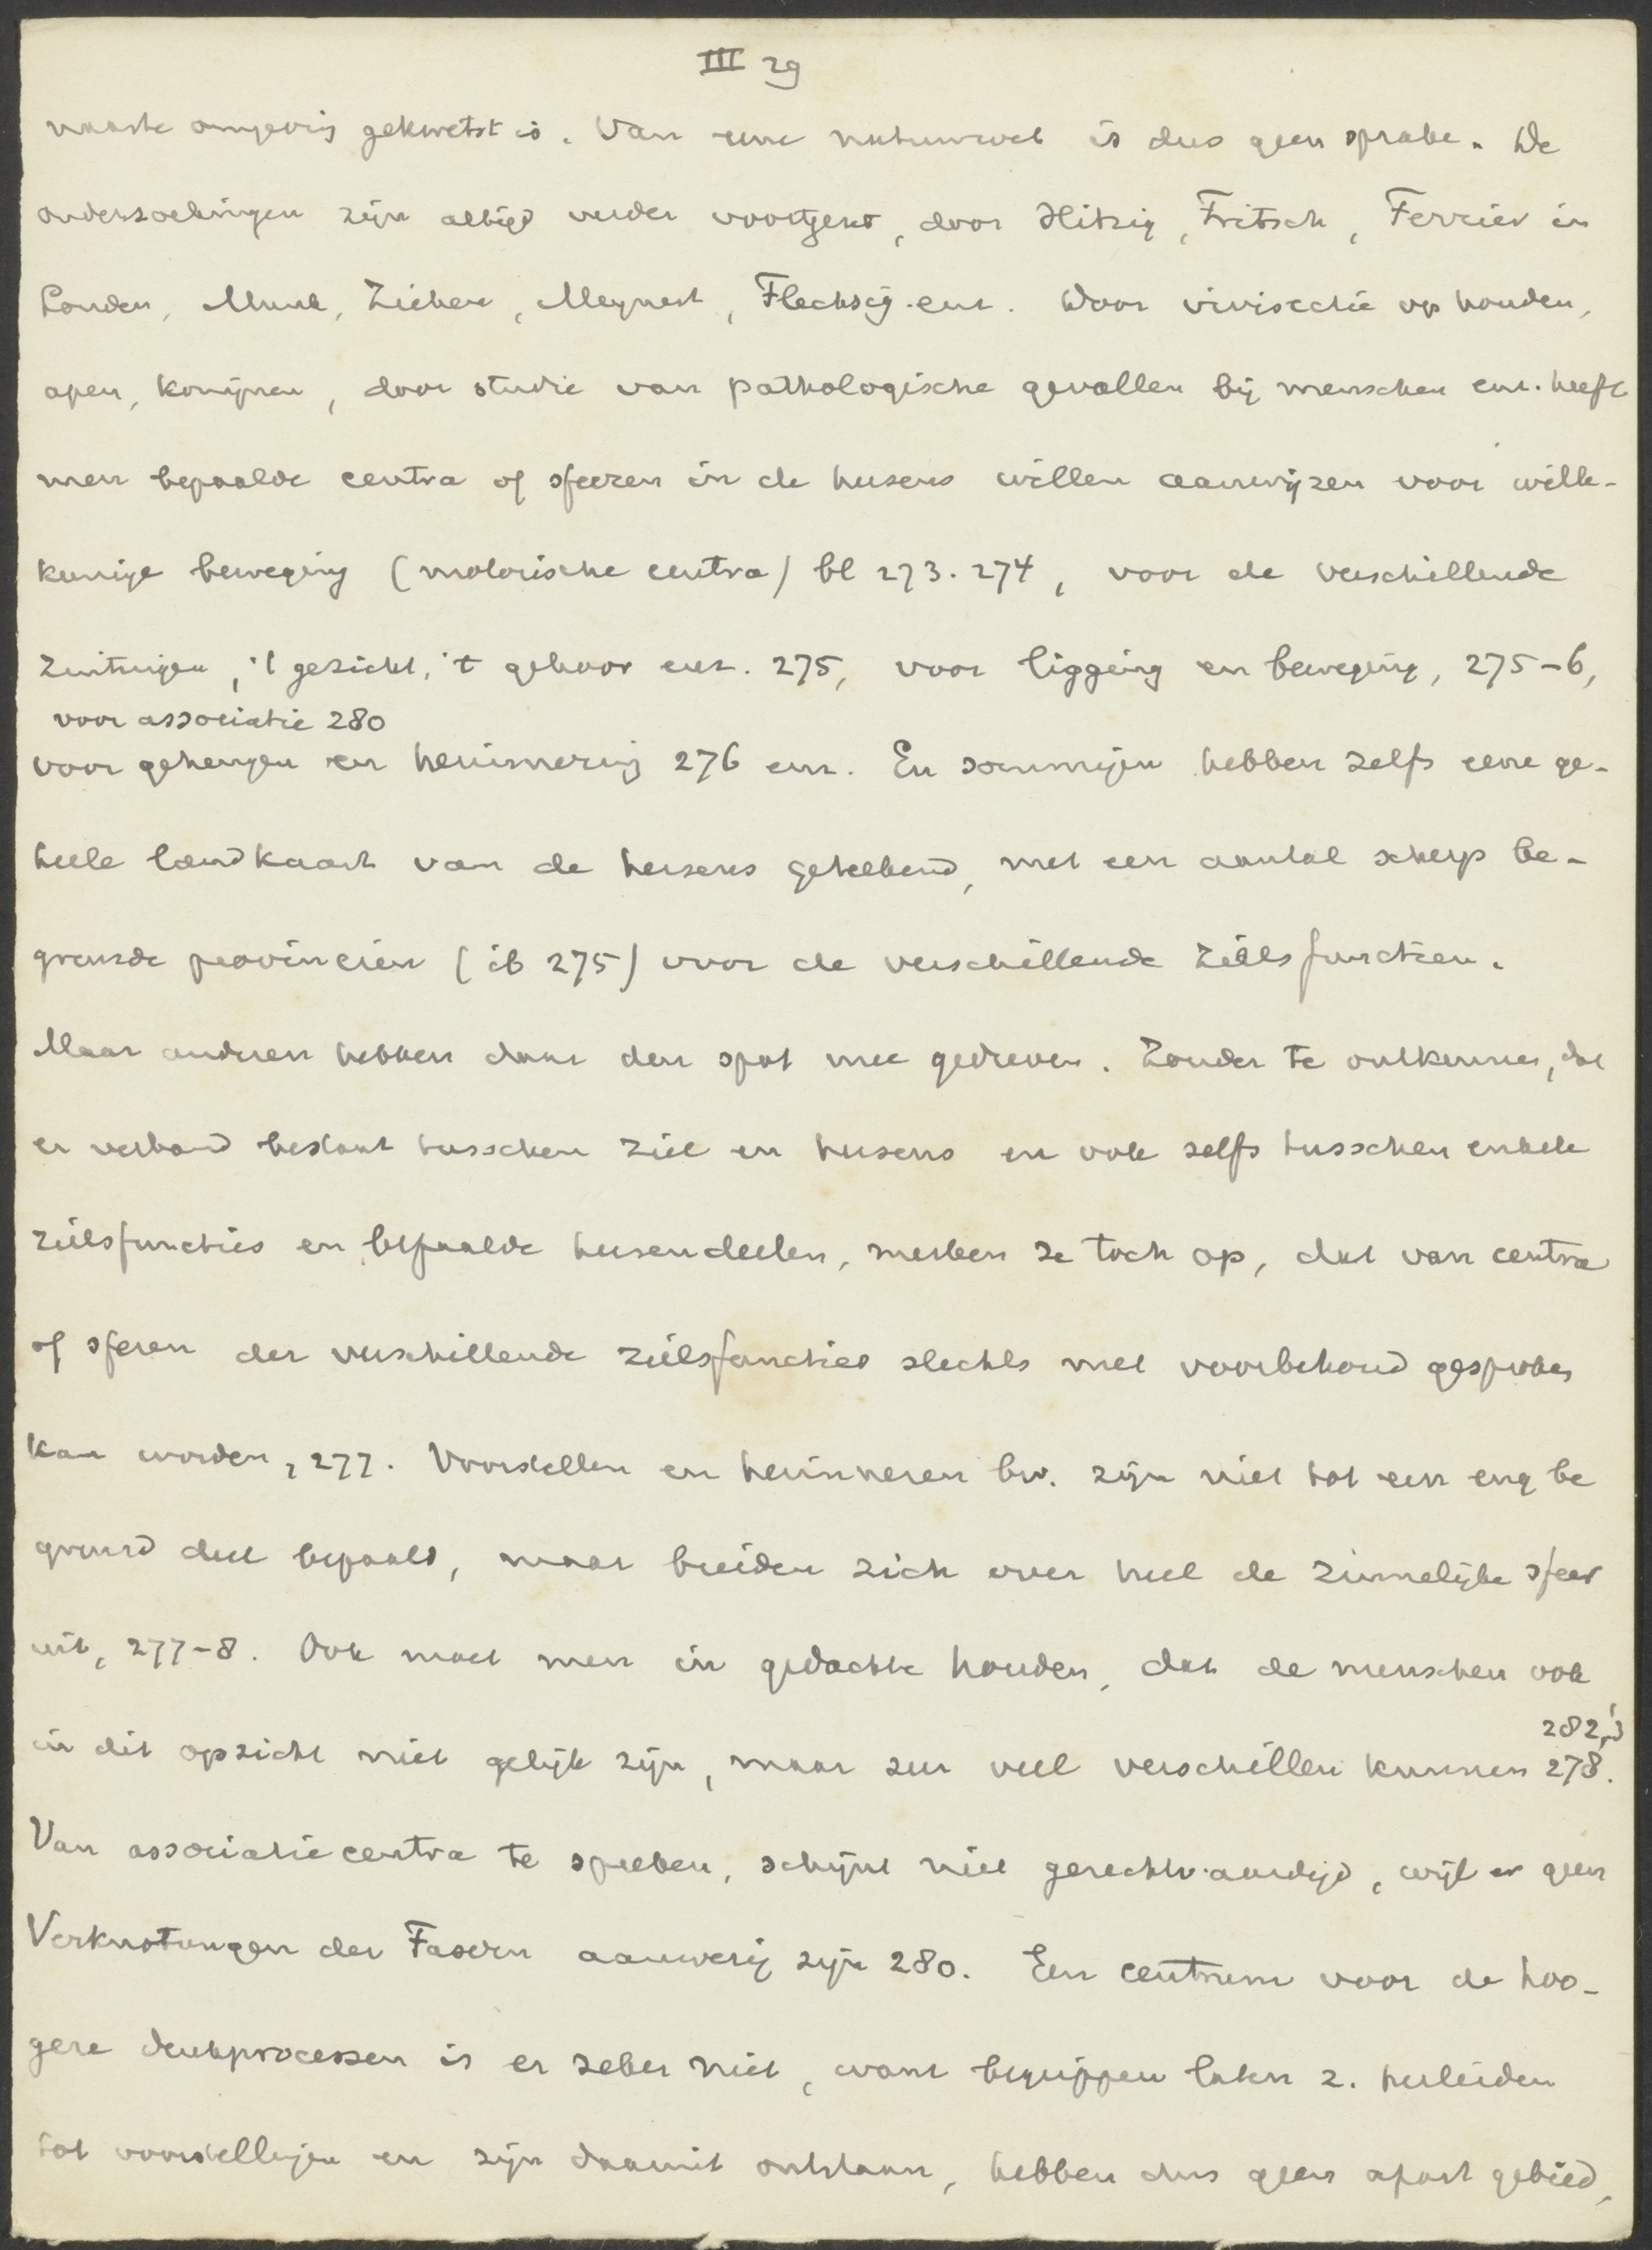 III 29
naaste omgeving gekwetst is. Van eene natuurwet is dus geen sprake. De
onderzoekingen zijn altijd verder voortgezet, door Hitzig, Fritsch, Ferrier in
Londen, Munk, Ziehen, Meynert, Flechsig enz. Door vivisectie op honden,
apen, konijnen, door studie van pathologische gevallen bij menschen enz. heeft
men bepaalde centra of sfeeren in de hersens willen aanwijzen voor wille-
keurige beweging (motorische centra) bl 273. 274, voor de verschillende
zintuigen, 't gezicht, 't gehoor enz. 275, voor ligging en beweging, 275-6,
voor associatie 280
voor geheugen en herinnering 276 enz. En sommigen hebben zelfs eene ge-
heele landkaart van de hersens geteekend, met een aantal scherp be-
grensde provinciën (ib 275) voor de verschillende zielsfunctiën.
Maar anderen hebben daar den spot mee gedreven. Zonder te ontkennen, dat
er verband bestaat tusschen ziel en hersens en ook zelfs tusschen enkele
zielsfuncties en bepaalde hersendeelen, merken ze toch op, dat van centra
of sferen der verschillende zielsfuncties slechts met voorbehoud gesproken
kan worden, 277. Voorstellen en herinneren bv. zijn niet tot een eng be
grensd deel bepaald, maar breiden zich over heel de zinnelijke sfeer
uit, 277-8. Ook moet men in gedachte houden, dat de menschen ook
282,3
in dit opzicht niet gelijk zijn, maar zeer veel verschillen kunnen 278.
Van associatiecentra te spreken, schijnt niet gerechtvaardigd, wijl er geen
Verknotungen der Fasern aanwezig zijn 280. Een centrum voor de hoo-
gere denkprocessen is er zeker niet, want begrippen laten z. herleiden
tot voorstellingen en zijn daaruit ontstaan, hebben dus geen apart gebied,